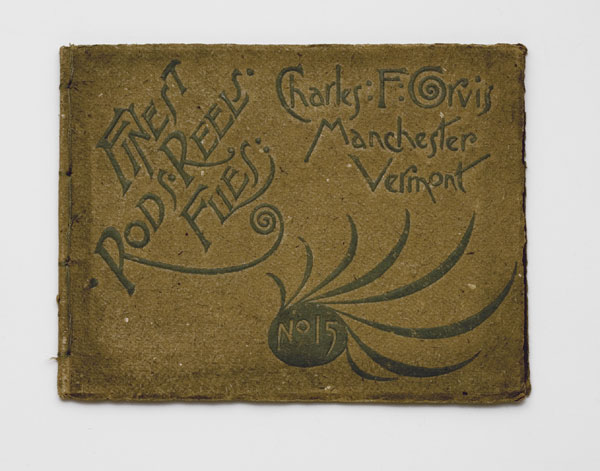 FINEST
RODS:REELS:
FLIES:
Charles:F:Orvis
Manchester
Vermont
No 15